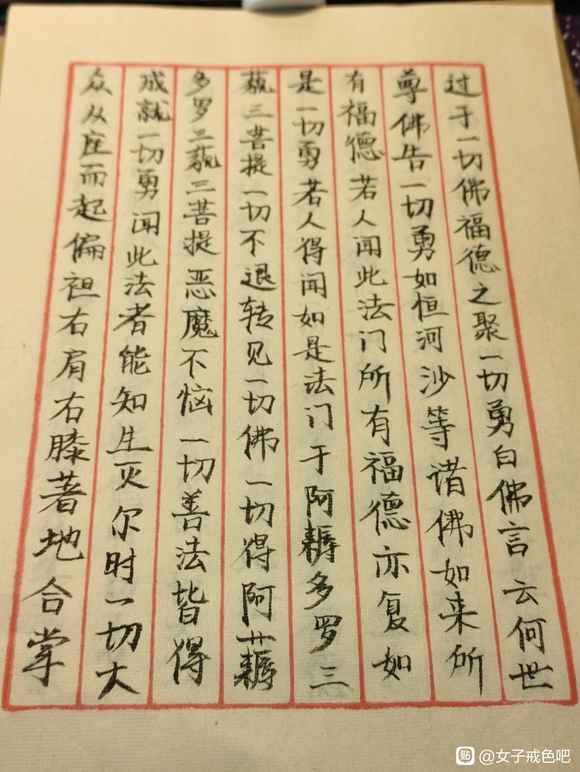 过于一切佛福德之聚一切勇白佛言云何世
尊佛告一切勇如恒河沙等诸佛如来所
有福德若人闻此法门所有福德亦复如
是一切勇若人得闻如是法门于阿耨多罗三
藐三菩提一切不退转见一切佛一切得阿耨
多罗三藐三菩提恶魔不恼一切善法皆得
成就一切勇闻此法者能知生灭尔时一切大
众从座而起偏袒右肩右膝著地合掌
贴 @女子戒色吧